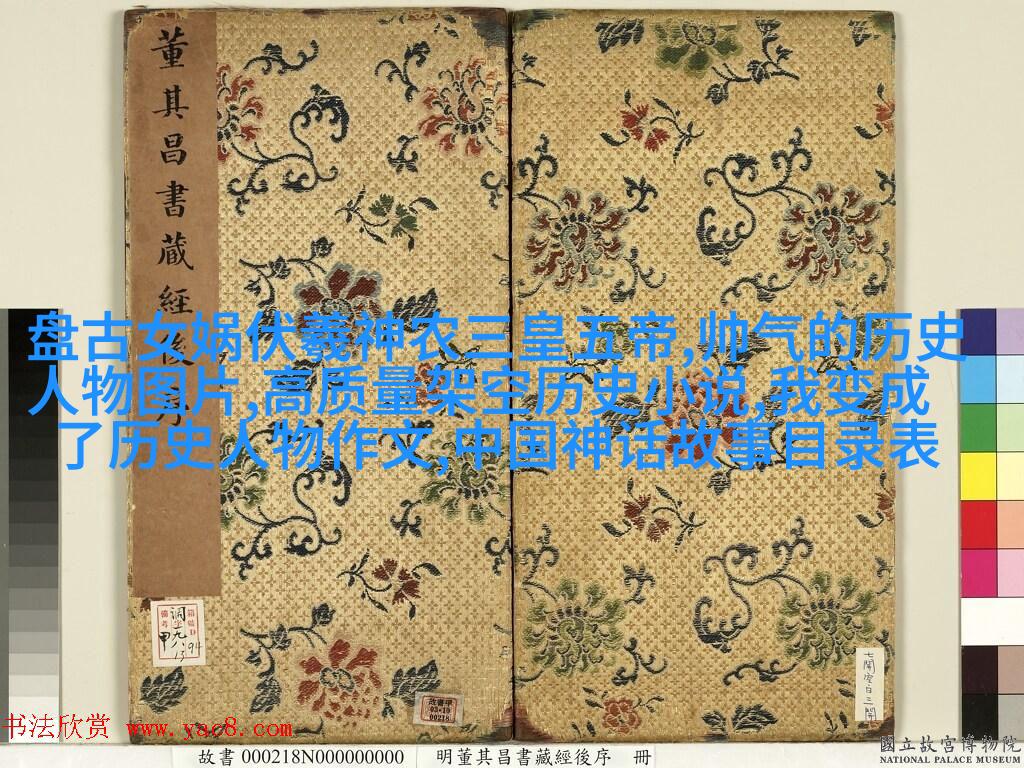 董其昌書藏經後序
盘古女娲伏羲神农三皇五帝,帅气的历史
人物图片,高质量架空历史小说,我变成
了历史人物作文,中国神话故事目录表
故書甲
03•10
00218
七開空白三開
书法欣赏 www.yac8.com
故書 000218N000000000 明董其昌書藏經後序 冊
國立故宮博物院
NATIONAL PALACE MUSEUM